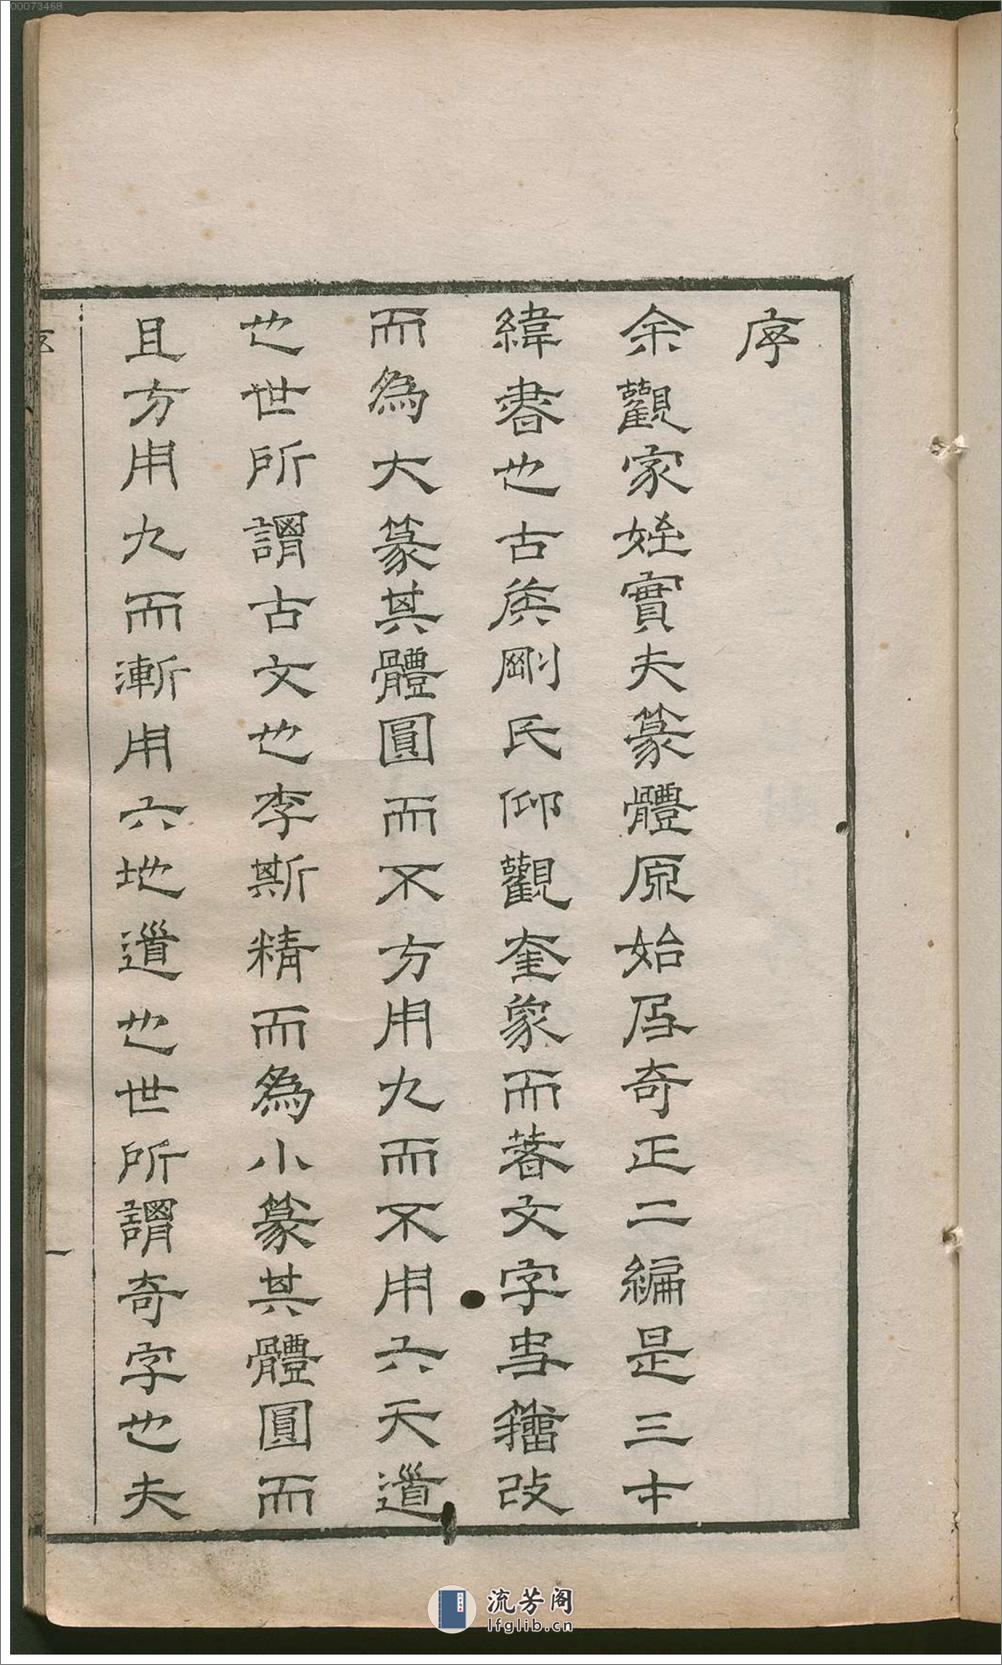 序
余觀家姪實夫篆體原始及奇正二編是三才
緯書也古矦剛氏仰觀奎象而著文字史籀改
而為大篆其體圓而不方用九而不用六天道
也世所謂古文也李斯精而為小篆其體圓而
且方用九而漸用六地道也世所謂奇字也夫
序
一
00073468
流芳阁
lfglib.cn